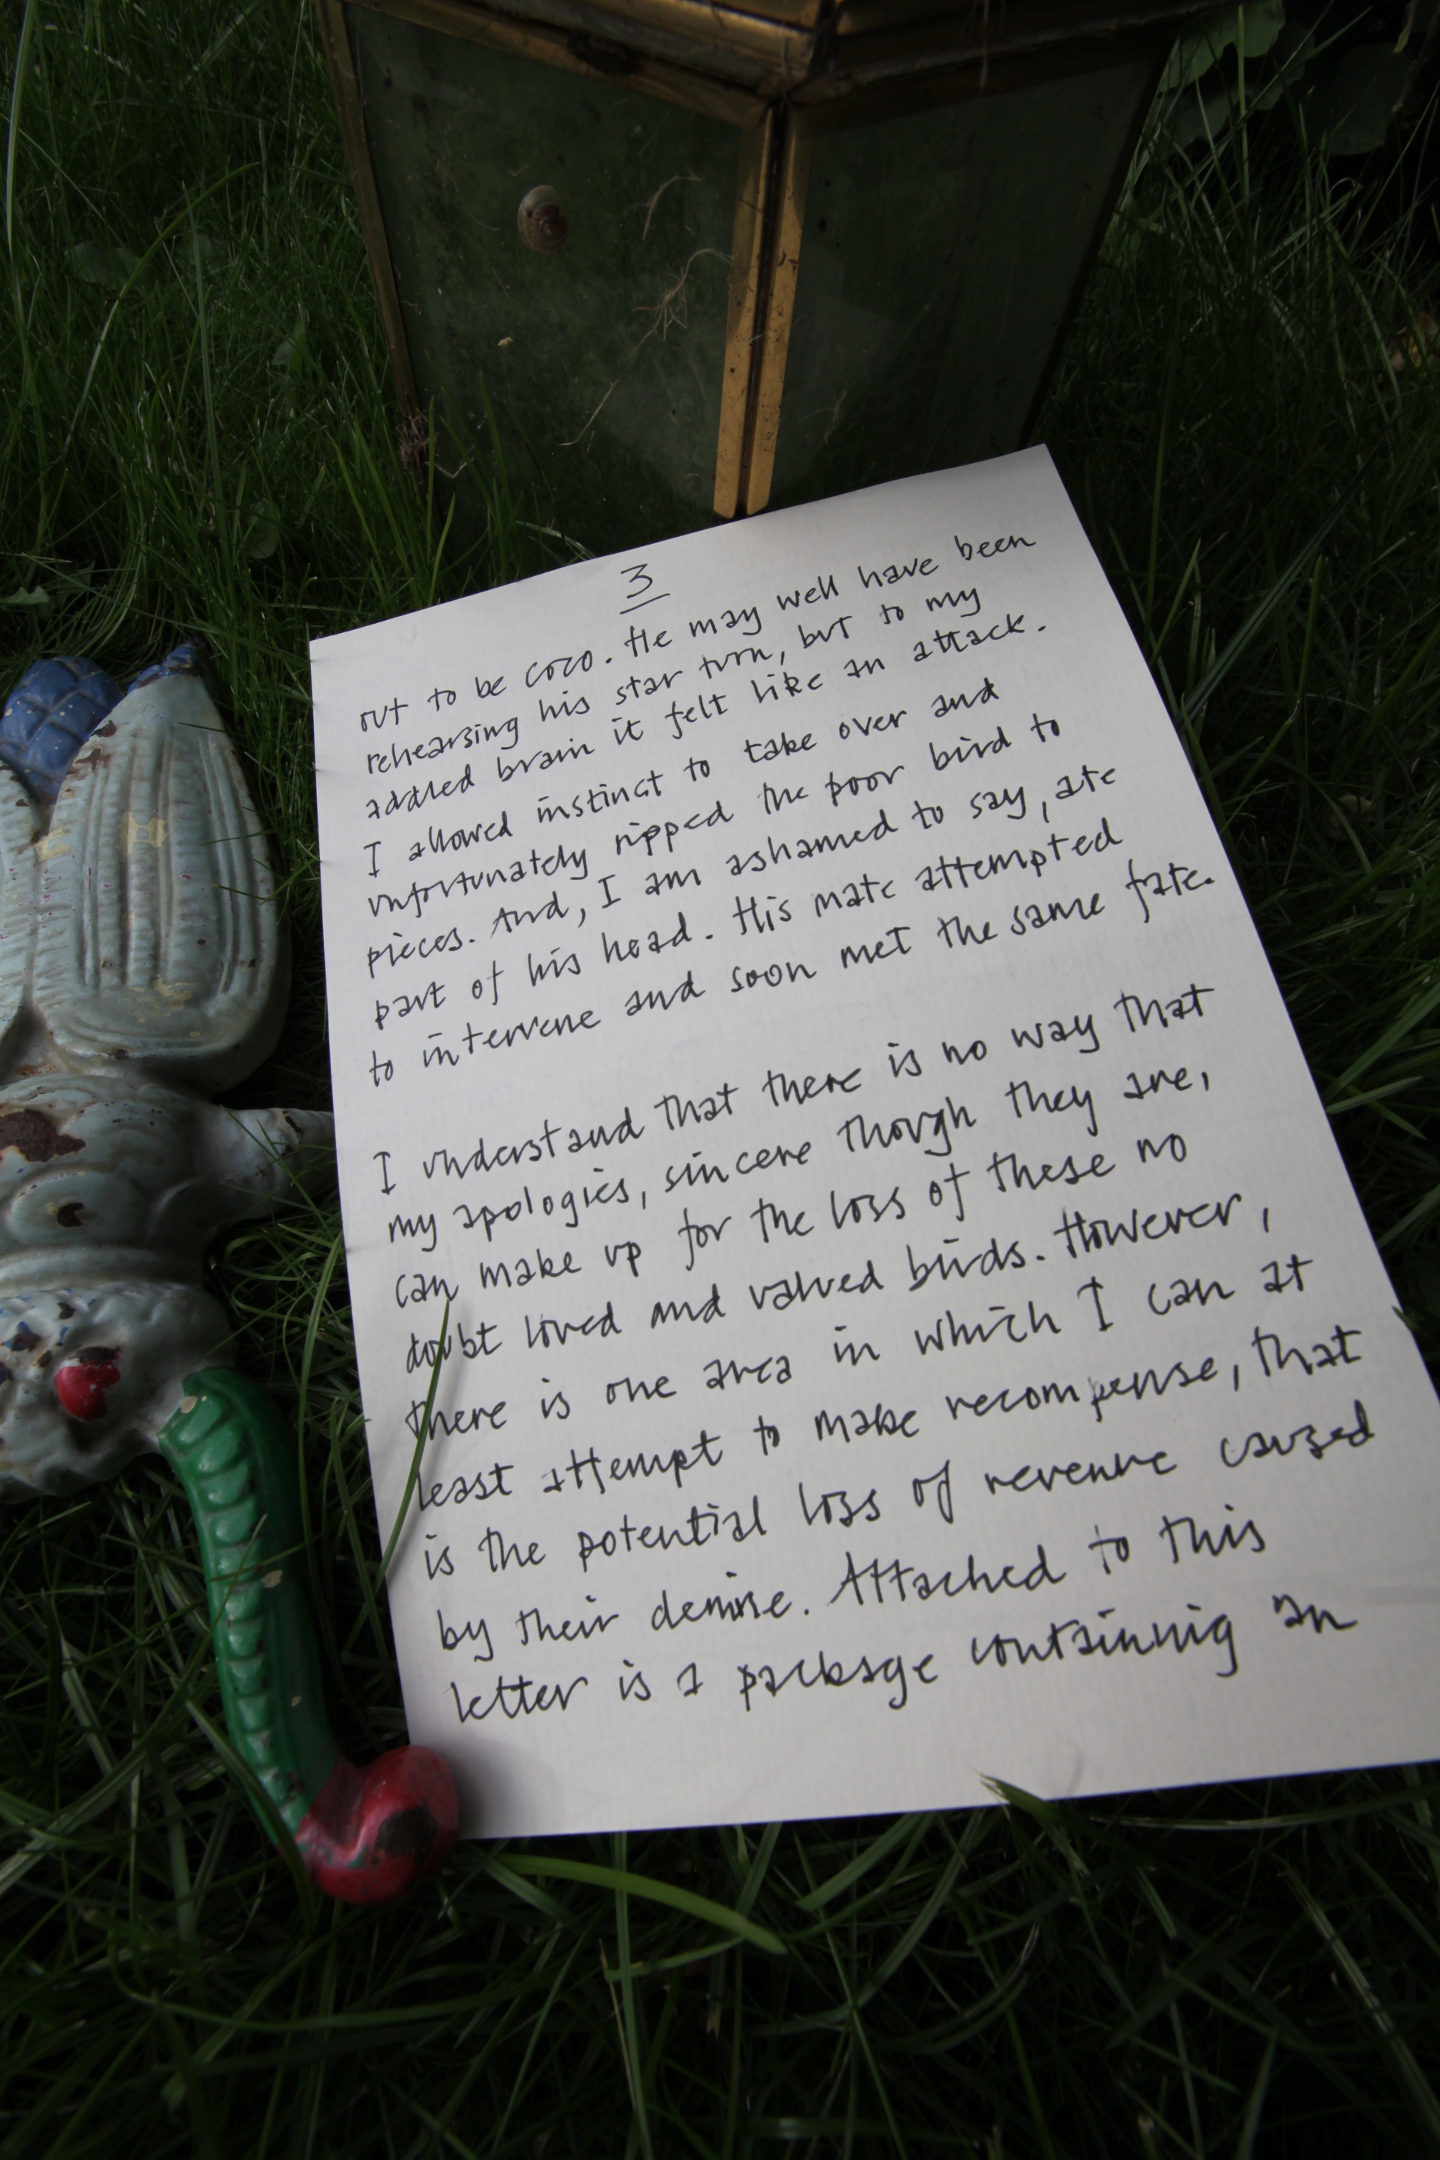 3
out to be Coco. He may well have been
rehearsing his star turn, but to my
addled brain it felt like an attack.
I allowed instinct to take over and
unfortunately ripped the poor bird to
pieces. And, I am ashamed to say, ate
part of his head. His mate attempted
to intervene and soon met the same fate.
I understand that there is no way that
my apologies, sincere though they are,
can make up for the loss of these no
doubt loved and valued birds. However,
there is one area in which I can at
least attempt to make recompense, that
is the potential loss of revenue caused
by their demise. Attached to this
letter is a package containing an